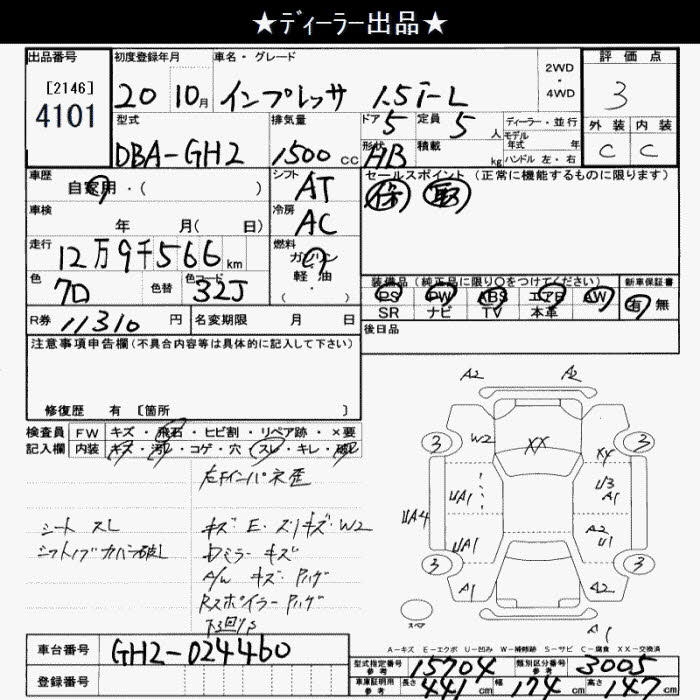 ★ディーラー出品★
出品番号 初度登録年月 車名・グレード 2WD・4WD 評価点
[2146]
4101 20 10月 インプレッサ 1.5i-L 3
型式 排気量 ドア 5 定員 5人 ディーラー・並行 外装 内装
DBA-GH2 1500cc 形状 HB 積載 kg モデル年式 年 C C
ハンドル 左・右
車歴 シフト セールスポイント (正常に機能するものに限ります)
自家用・( ) AT 保 取
車検 冷房
年 月( 日) AC
走行 燃料
12万9千566km ガソリン
軽油
( ・ )
色 色替 色コード 装備品 (純正品に限り○をつけてください) 新車保証書
7D 32J PS PW ABS エアB AW 有 無
R券 11310円 名変期限 月 日 SR ナビ TV 本革
注意事項申告欄(不具合内容等は具体的に記入して下さい) 後日品
修復歴 有 [箇所 ]
検査員 FW キズ・飛石・ヒビ割・リペア跡・×要
記入欄 内装 キズ・汚レ・コゲ・穴・スレ・キレ・破レ
A2 A2
W2 XX X4
3 3
UA1 U3 A1
UA4 UA1 A2 U1
3 3
A1 A2
スペア A1
左Fインパネ歪
シート スレ キズ E・スリキズ・W2
シフトノブカバー破レ Dミラー キズ
A/W キズ・ハゲ
Rスポイラー ハゲ
A-キズ E-エクボ U-凹み W-補修跡 S-サビ C-腐食 XX-交換済
車台番号 GH2-024460 型式指定番号 参考 15704 類別区分番号 参考 3005
登録番号 車庫証明用 参考 長さ 441cm 幅 174cm 高さ 147cm